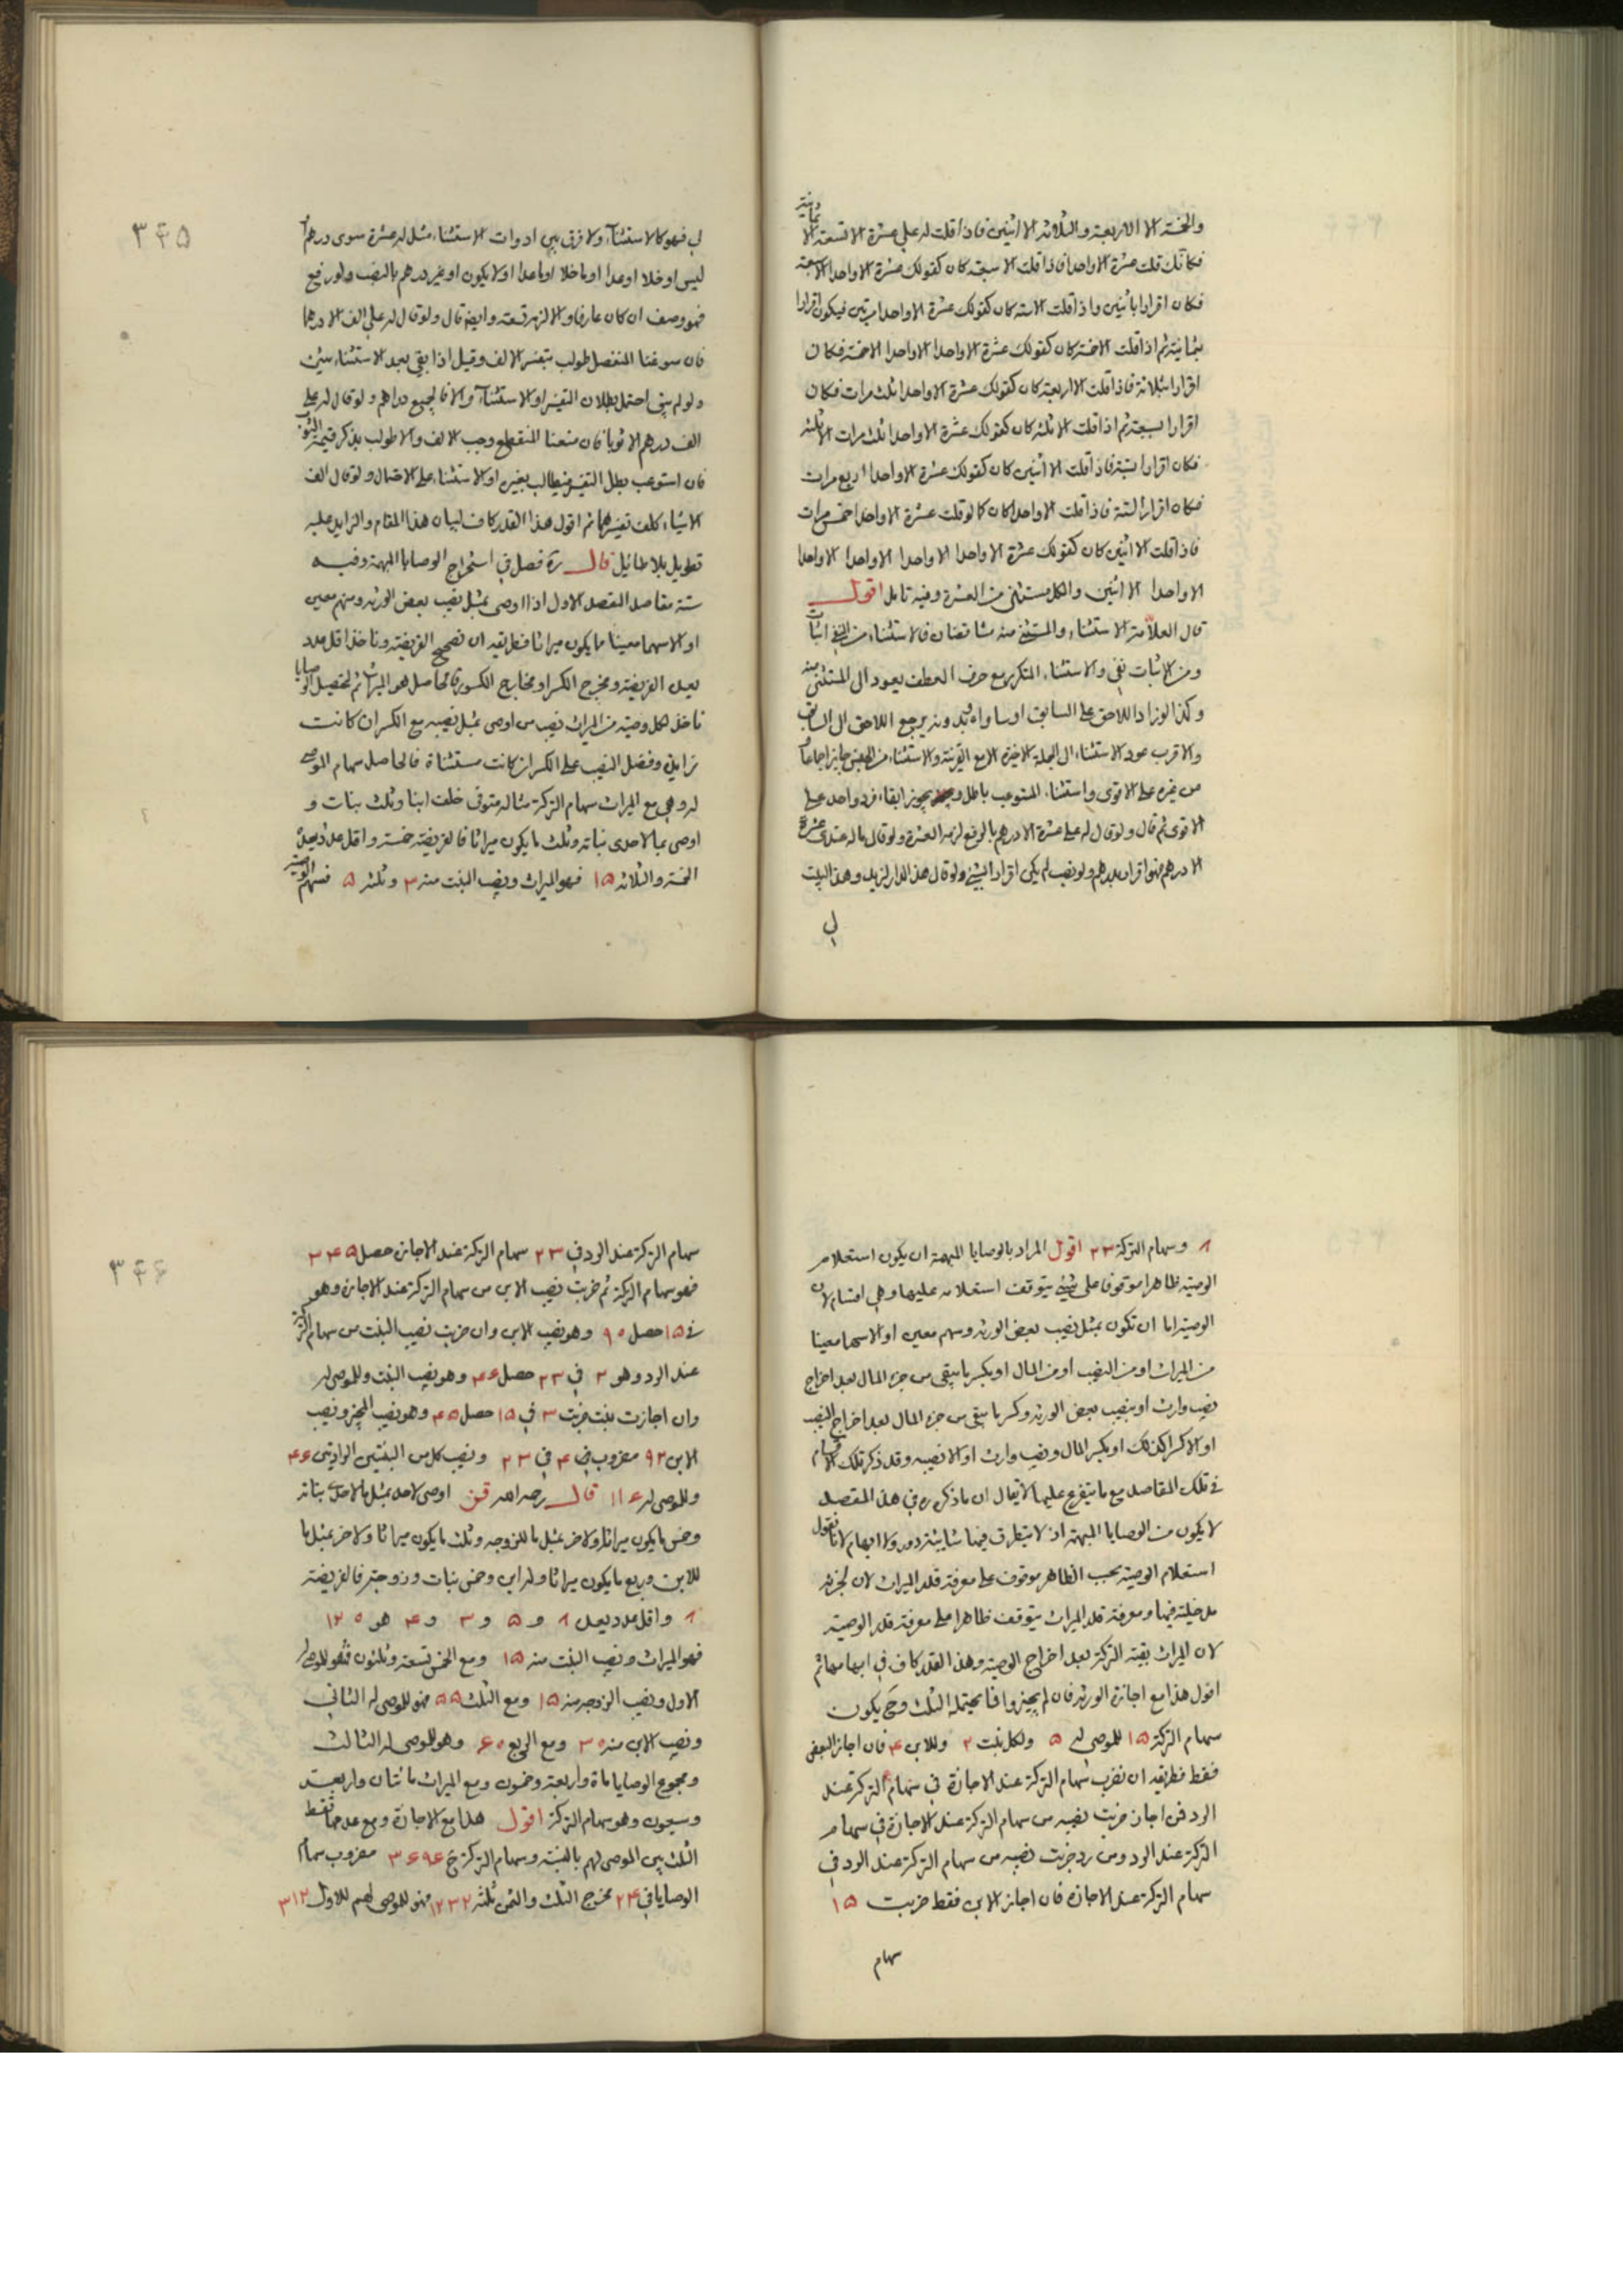 والخمسة الا الاربعة والثلاثة الا اثنين فاذا قلت له علي عشرة الا تسعة الا ثمانية
فكأنك قلت عشرة الا واحدا فاذا قلت الا سبعة كان كقولك عشرة الا واحدا الا سبعة
فكان اقرارا باثنين واذا قلت الا ستة كان كقولك عشرة الا واحدا مرتين فيكون اقرارا
بثمانية ثم اذا قلت الا خمسة كان كقولك عشرة الا واحدا الا واحدا الا خمسة فكان
اقرارا بثلاثة فاذا قلت الا اربعة كان كقولك عشرة الا واحدا ثلث مرات فكان
اقرارا بسبعة ثم اذا قلت الا ثلثة كان كقولك عشرة الا واحدا ثلث مرات الا ثلثة
فكان اقرارا فاذا قلت الا اثنين كان كقولك عشرة الا واحدا اربع مرات
فكان اقرارا بستة فاذا قلت الا واحدا كان كما لو قلت عشرة الا واحدا خمس مرات
فاذا قلت الا اثنين كان كقولك عشرة الا واحدا الا واحدا الا واحدا الا واحدا
الا واحدا الا اثنين والكل مستثنى من العشرة وفيه تامل اقول
قال العلامة الاستثناء والمستثنى منه متناقضان فالاستثناء من النفي اثبات
ومن الاثبات نفي والاستثناء المتكرر مع حرف العطف يعود الى المستثنى منه
وكذا لو زاد اللاحق على السابق او ساواه وبدونه يرجع اللاحق الى السابق
والاقرب عود الاستثناء الى الجملة الاخيرة الا مع القرينة والاستثناء من الجنس جايز اجماعا و
من غيره على الاقوى واستثناء المستوعب باطل ويجوز ابقاء فرد واحد على
الاقوى ثم قال ولو قال له علي عشرة الا درهم بالرفع لزمه العشرة ولو قال ما له عندي عشرة
الا درهم فهو اقرار بدرهم ولو نصب لم يكن اقرارا بشيء ولو قال هذا الدار لزيد وهذا البيت
لي
لي فهو كالاستثناء ولا فرق بين ادوات الاستثناء مثل له عشرة سوى درهم او
ليس او خلا او عدا او ما خلا او ما عدا او لا يكون او غير درهم بالنصب ولو رفع
فهو وصف ان كان عارفا والا لزمه تسعة وايضا قال ولو قال له علي الف الا درهما
فان سوغنا المنفصل طولب بتفسير الالف وقيل اذا بقي بعد الاستثناء شيء
ولو لم يبق احتمل بطلان التفسير او الاستثناء والا فالجميع دراهم ولو قال له علي
الف درهم الا ثوبا فان منعنا المنقطع وجب الالف والا طولب بذكر قيمة الثوب
فان استوعب بطل التفسير فيطالب بغيره او الاستثناء على الاحتمال ولو قال الف
الا شيئا كلف تفسيرهما ثم اقول هذا القدر كاف لبيان هذا المقام والزايد عليه
تطويل بلا طائل قال ره فصل في استخراج الوصايا المبهمة وفيه
ستة مقاصد المقصد الاول اذا اوصى بمثل نصيب بعض الورثة وسهم معين
او الا سهما معينا ما يكون ميراثا فطريقه ان تصحح الفريضة وتاخذ اقل عدد
يعد الفريضة ومخرج الكسر او مخارج الكسور فالحاصل هو الميراث ثم لتحصيل الوصايا
تاخذ لكل وصية من الميراث نصيب من اوصى بمثل نصيبه مع الكسر ان كانت
بزايد وفضل النصيب على الكسر ان كانت مستثناة فالحاصل سهام الموصى
له وهي مع الميراث سهام التركة مثاله متوفى خلف ابنا وثلث بنات و
اوصى بما لاحدى بناته وثلث ما يكون ميراثا فالفريضة خمسة واقل عدد يعده
الخمسة والثلاثة ١٥ فهو الميراث ونصيب البنت منه ٣ وثلثه ٥ فسهم الوصية
٣٤٥
٨ وسهام التركة ٢٣ اقول المراد بالوصايا المبهمة ان يكون استعلام
الوصية ظاهرا موقوفا على شيء يتوقف استعلامه عليها وهي اقسام لان
الوصية اما ان تكون بمثل نصيب بعض الورثة وسهم معين او الا سهما معينا
من الميراث او من النصيب او من المال او بكسر ما يبقى من جزء المال بعد اخراج
نصيب وارث او بنصيب بعض الورثة وكسر ما يبقى من جزء المال بعد اخراج النصيب
او الا كسرا كذلك او بكسر المال ونصيب وارث او الا نصيبه وقد ذكر تلك الاقسام
في تلك المقاصد مع ما يتفرع عليها لا يقال ان ما ذكره ره في هذا المقصد
لا يكون من الوصايا المبهمة اذ لا يتطرق فيها شائبة دور ولا ابهام لانا نقول
استعلام الوصية بحسب الظاهر موقوف على معرفة قدر الميراث لان لجزئه
مدخلية فيها ومعرفة قدر الميراث يتوقف ظاهرا على معرفة قدر الوصية
لان الميراث بقية التركة بعد اخراج الوصية وهذا القدر كاف في ابهامها ثم
اقول هذا مع اجازة الورثة فان لم يجيزوا فما يحتمله الثلث وح يكون
سهام التركة ١٥ للموصى له ٥ ولكل بنت ٢ وللابن ٤ فان اجاز البعض
فقط فطريقه ان نضرب سهام التركة عند الاجازة في سهام التركة عند
الرد فمن اجاز ضربت نصيبه من سهام التركة عند الاجازة في سهام
التركة عند الرد ومن رد ضربت نصيبه من سهام التركة عند الرد في
سهام التركة عند الاجازة فان اجاز الابن فقط ضربت ١٥
سهام
سهام التركة عند الرد في ٢٣ سهام التركة عند الاجازة حصل ٣٤٥
فهو سهام التركة ثم ضربت نصيب الابن من سهام التركة عند الاجازة وهو
في ١٥ حصل ٩٠ وهو نصيب الابن وان ضربت نصيب البنت من سهام التركة
عند الرد وهو ٢ في ٢٣ حصل ٤٦ وهو نصيب البنت وللموصى له
وان اجازت بنت ضربت ٣ في ١٥ حصل ٤٥ وهو نصيب المجيز ونصيب
الابن ٩٢ مضروب ٤ في ٢٣ ونصيب كل من البنتين الرادتين ٤٦
وللموصى له ١١٦ قال رحمه الله اوصى لاحد بمثل ما لاحدى بناته
وخمس ما يكون ميراثا ولاخر بمثل ما للزوجة وثلث ما يكون ميراثا ولاخر بمثل ما
للابن وربع ما يكون ميراثا وله ابن وخمس بنات وزوجة فالفريضة
٨ واقل عدد يعد ٨ و ٥ و ٣ و ٤ هو ١٢٠
فهو الميراث ونصيب البنت منه ١٥ ومع الخمس تسعة وثلثون فهو للموصى له
الاول ونصيب الزوجة منه ١٥ ومع الثلث ٥٥ فهو للموصى له الثاني
ونصيب الابن منه ٣٠ ومع الربع ٦٠ وهو للموصى له الثالث
ومجموع الوصايا مائة واربعة وخمسون ومع الميراث مائتان واربعة
وسبعون وهو سهام التركة اقول هذا مع الاجازة ومع عدمها فقط
الثلث بين الموصى لهم بالنسبة وسهام التركة ح ٣٦٩٦ مضروب سهام
الوصايا في ٢٤ مخرج الثلث والثمن ثلثه ١٢٣٢ فهو للموصى لهم للاول ٣١٢
٣٤٦